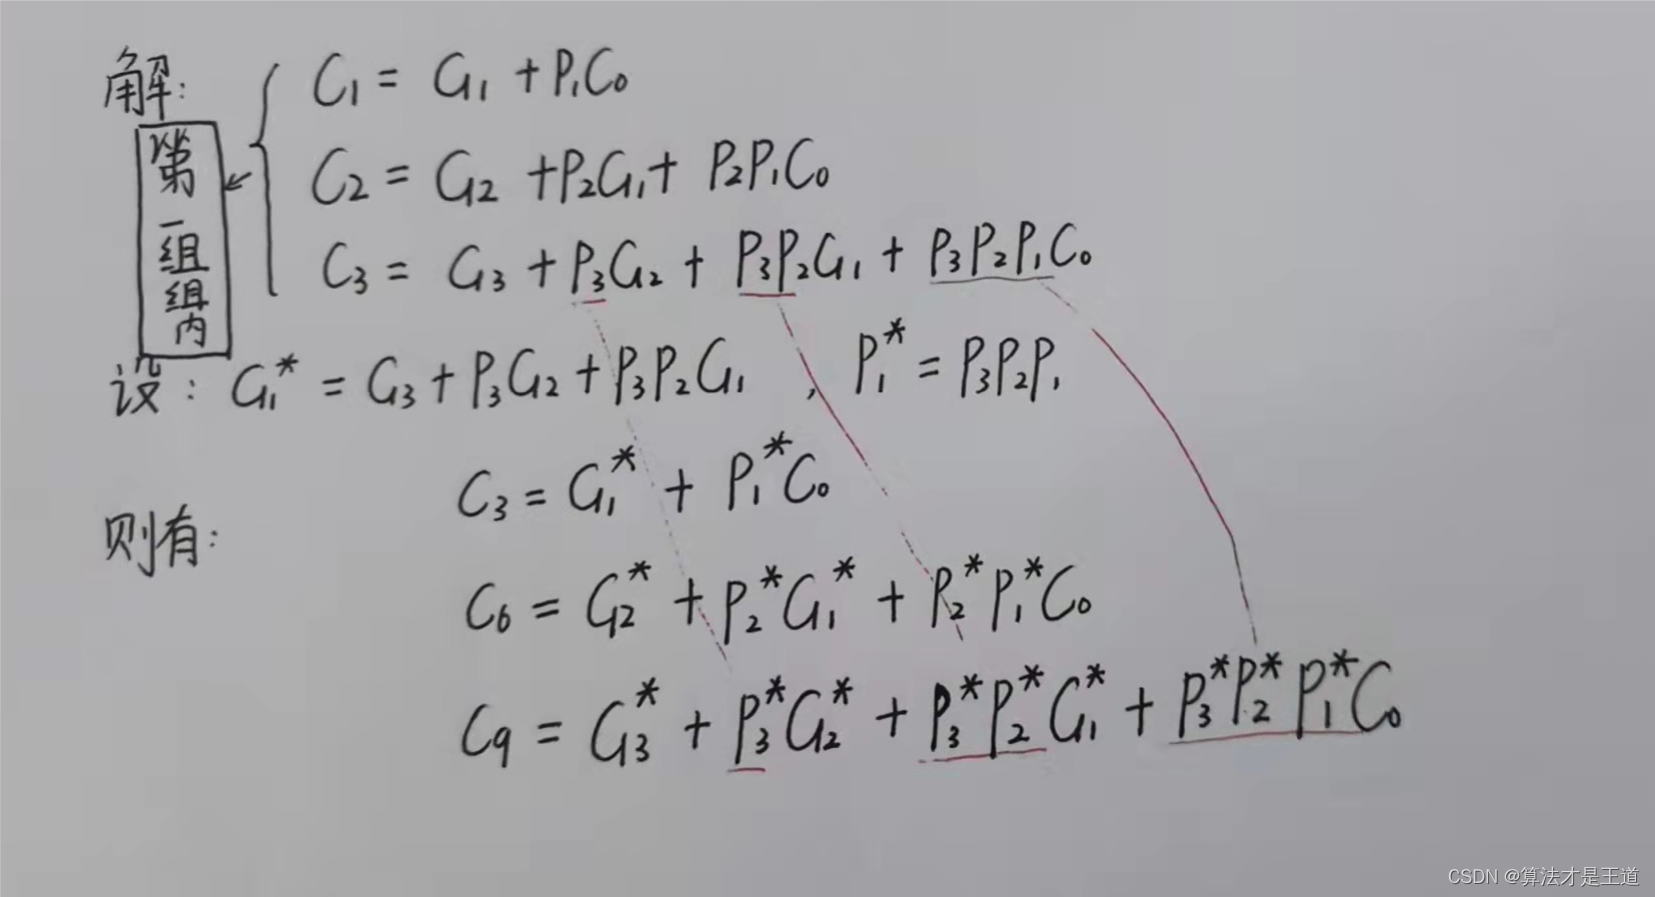 解: C₁ = G₁ + P₁C₀
C₂ = G₂ + P₂G₁ + P₂P₁C₀
C₃ = G₃ + P₃G₂ + P₃P₂G₁ + P₃P₂P₁C₀
第一组组内
设: G₁* = G₃ + P₃G₂ + P₃P₂G₁ , P₁* = P₃P₂P₁
C₃ = G₁* + P₁*C₀
则有:
C₆ = G₂* + P₂*G₁* + P₂*P₁*C₀
C₉ = G₃* + P₃*G₂* + P₃*P₂*G₁* + P₃*P₂*P₁*C₀
CSDN @算法才是王道